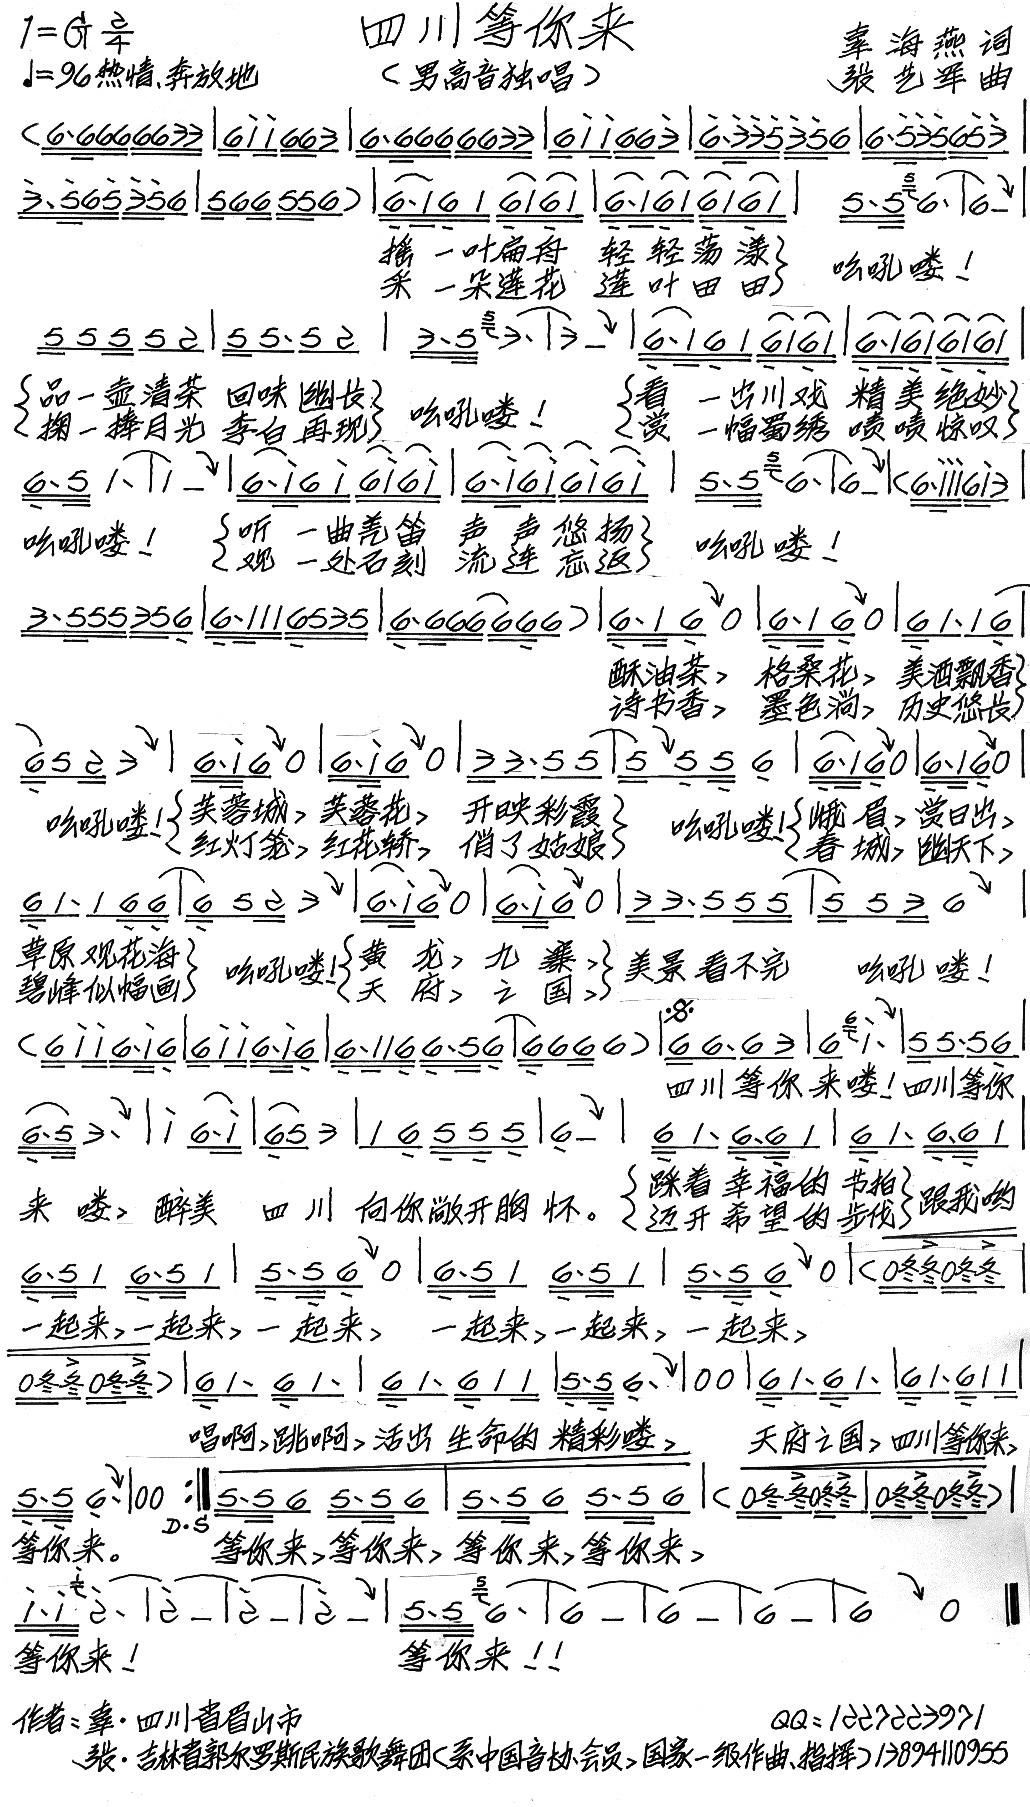 1=G 2/4 四川等你来 辜海燕词
♩=96 热情、奔放地 (男高音独唱) 张艺军曲
(6·666 6633|6ii663|6·666 6633|6ii663|6·335356|6·535653|
3·565356|566556)|6·161 6161|6·1616161| 5·5 6·|6-|
摇一叶扁舟 轻轻荡漾 吆吼喽!
采一朵莲花 莲叶田田
55552|55·52| 3·5 3·|3-|6·161 6161|6·1616161|
品一壶清茶 回味幽长 吆吼喽! 看一出川戏 精美绝妙
掬一捧月光 李白再现 赏一幅蜀绣 啧啧惊叹
6·5 1·|1-|6·i6i 6i6i|6·i6i6i6i| 5·5 6·|6-|(6·iii6i3|
吆吼喽! 听一曲羌笛 声声悠扬 吆吼喽!
观一处石刻 流连忘返
3·555356|6·1116535|6·666666)|6·16 0|6·16 0|61·16|
酥油茶, 格桑花, 美酒飘香
诗书香, 墨色淌, 历史悠长
652 3| 6·i6 0|6·i6 0|33·55|5 55 6|6·160|6·160|
吆吼喽! 芙蓉城, 芙蓉花, 开映彩霞 吆吼喽! 峨眉, 赏日出,
红灯笼, 红花轿, 俏了姑娘 春城, 幽天下,
61·166|652 3|6·i60|6·i60|33·555|553 6|
草原观花海 吆吼喽! 黄龙, 九寨, 美景看不完 吆吼喽!
碧峰似幅画 天府, 之国,
(6ii6·i6|6ii6·i6|6·1166·56|6666)|66·63|6 i·|55·56|
四川等你来喽! 四川等你
6·5 3·|i 6·i|65 3|16555|6-| 61·6·61|61·6·61|
来喽, 醉美四川向你敞开胸怀。 踩着幸福的节拍 跟我哟
迈开希望的步伐
6·51 6·51|5·56 0|6·51 6·51|5·56 0|(0冬冬0冬冬|
一起来,一起来,一起来, 一起来,一起来,一起来,
0冬冬0冬冬)|61·61·|61·611|5·56·|00|61·61·|61·611|
唱啊,跳啊,活出生命的精彩喽, 天府之国,四川等你来,
5·56·|00:‖5·56 5·56|5·56 5·56|(0冬冬0冬冬|0冬冬0冬冬)|
D.S
等你来。 等你来,等你来,等你来,等你来,
i·i 2·|2-|2-|2-|5·5 6·|6-|6-|6-|6 0‖
等你来! 等你来!!
作者:辜·四川省眉山市 QQ:1227223971
张·吉林省郭尔罗斯民族歌舞团(系中国音协会员,国家一级作曲、指挥)13894110955